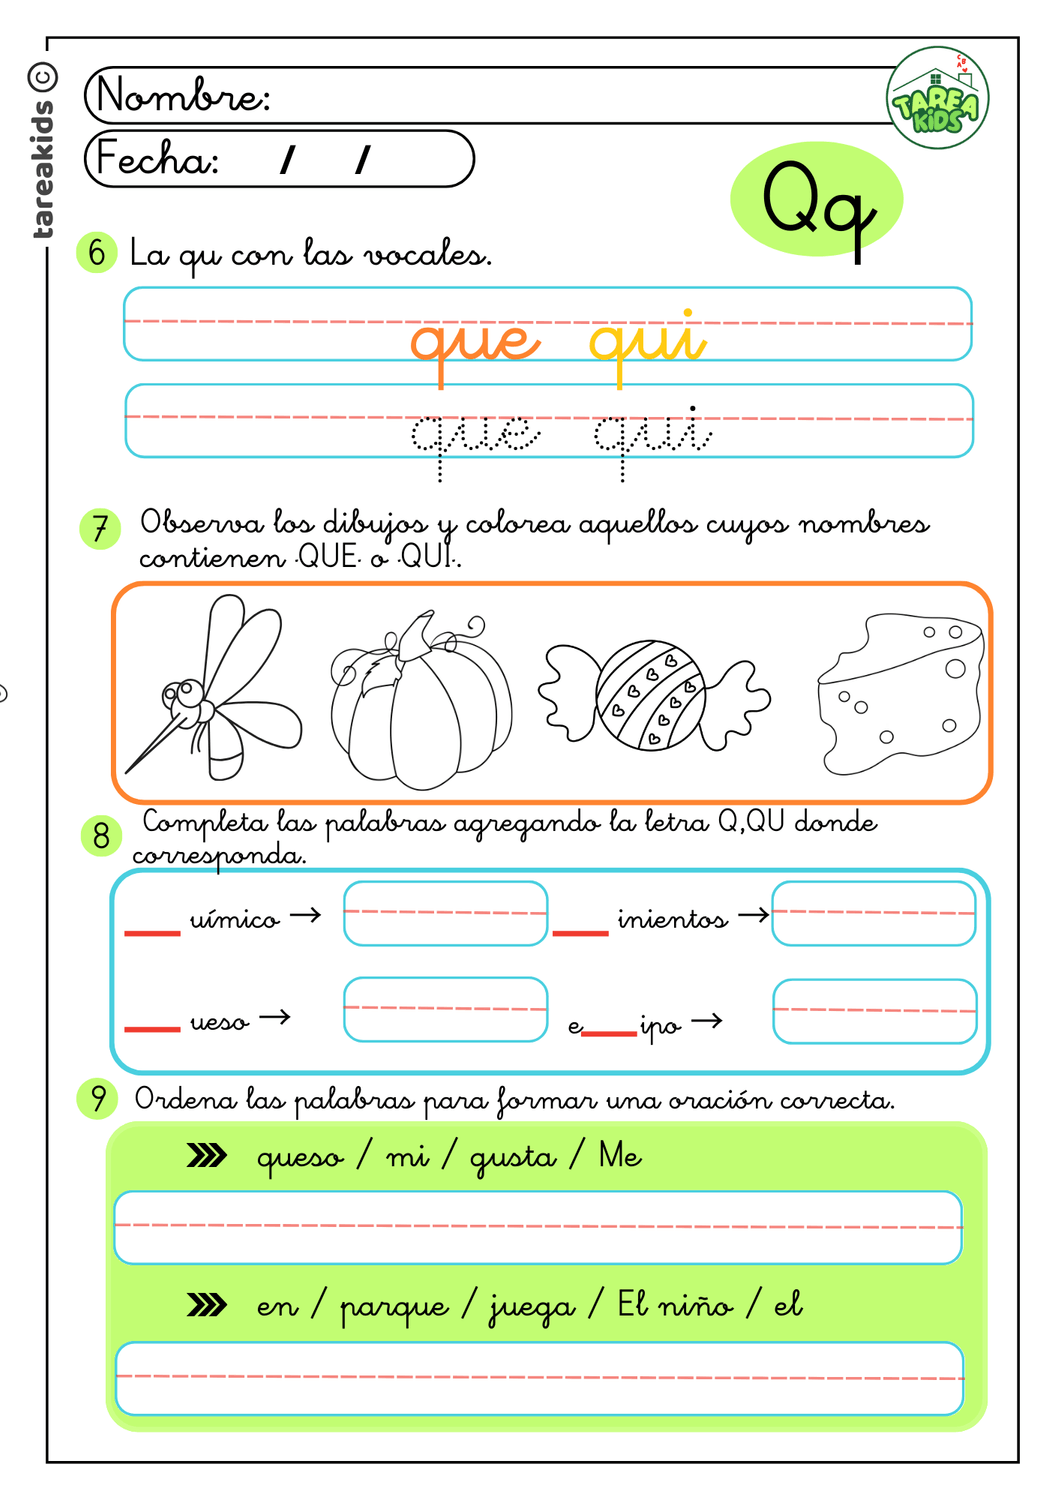 tareakids ©
Nombre:
TAREA
KiDS
Fecha: / /
Qq
6 La qu con las vocales.
que qui
que qui
7 Observa los dibujos y colorea aquellos cuyos nombres
contienen ·QUE· o ·QUI·.
8 Completa las palabras agregando la letra Q,QU donde
corresponda.
___ uímico → ___ inientos →
___ ueso → e___ipo →
9 Ordena las palabras para formar una oración correcta.
queso / mi / gusta / Me
en / parque / juega / El niño / el